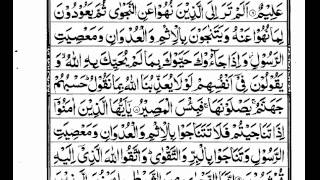 عَلِيْمٌ ۝ اَلَمْ تَرَ اِلَى الَّذِيْنَ نُهُوْا عَنِ النَّجْوٰى ثُمَّ يَعُوْدُوْنَ
لِمَا نُهُوْا عَنْهُ وَيَتَنٰجَوْنَ بِالْاِثْمِ وَالْعُدْوَانِ وَمَعْصِيَتِ
الرَّسُوْلِ وَاِذَا جَآءُوْكَ حَيَّوْكَ بِمَا لَمْ يُحَيِّكَ بِهِ اللّٰهُ وَ
يَقُوْلُوْنَ فِىْٓ اَنْفُسِهِمْ لَوْلَا يُعَذِّبُنَا اللّٰهُ بِمَا نَقُوْلُ حَسْبُهُمْ
جَهَنَّمُ يَصْلَوْنَهَا فَبِئْسَ الْمَصِيْرُ ۝ يٰٓاَيُّهَا الَّذِيْنَ اٰمَنُوْٓا
اِذَا تَنَاجَيْتُمْ فَلَا تَتَنَاجَوْا بِالْاِثْمِ وَالْعُدْوَانِ وَمَعْصِيَتِ
الرَّسُوْلِ وَتَنَاجَوْا بِالْبِرِّ وَالتَّقْوٰى وَاتَّقُوا اللّٰهَ الَّذِىْٓ اِلَيْهِ